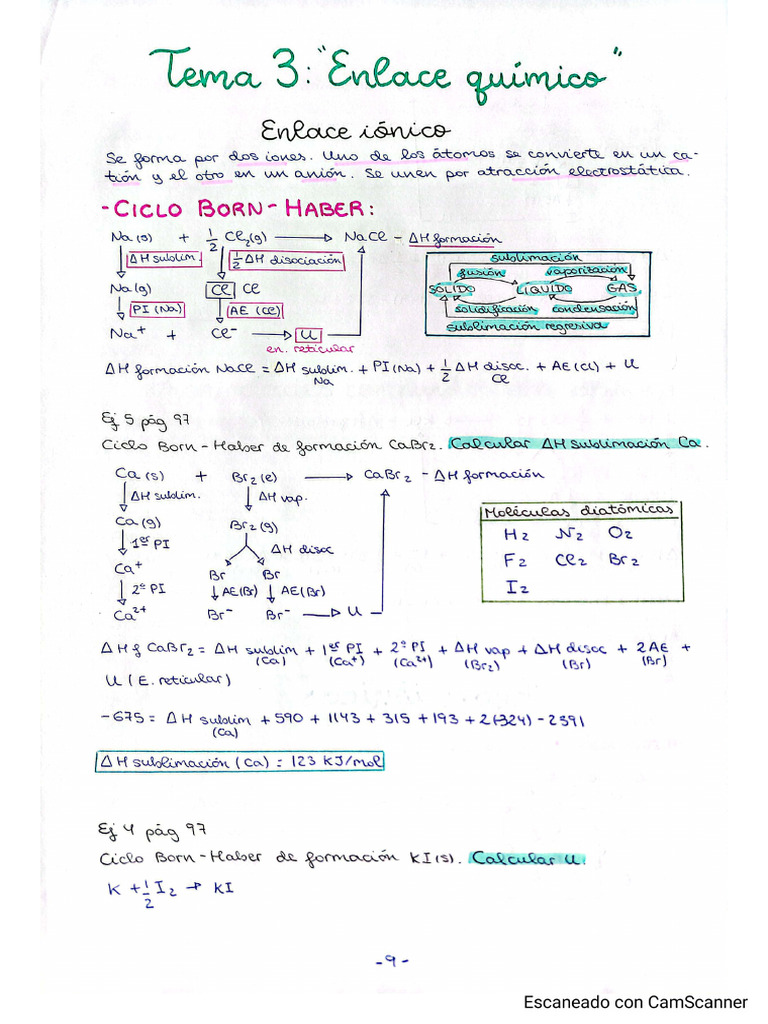 Tema 3: "Enlace químico"
Enlace iónico
Se forma por dos iones. Uno de los átomos se convierte en un ca-
tión y el otro en un anión. Se unen por atracción electrostática.
- CICLO BORN - HABER:
Na (s) + 1/2 Cl2 (g) → NaCl - ΔH formación
ΔH sublim. 1/2 ΔH disociación
Na (g) Cl Cl
PI (Na) AE (Cl)
Na+ + Cl- → U
en. reticular
sublimación
fusión vaporización
SÓLIDO LÍQUIDO GAS
solidificación condensación
sublimación regresiva
ΔH formación NaCl = ΔH sublim. + PI (Na) + 1/2 ΔH disoc. + AE (Cl) + U
Na Cl
Ej 5 pág 97
Ciclo Born - Haber de formación CaBr2. Calcular ΔH sublimación Ca.
Ca (s) + Br2 (l) → CaBr2 - ΔH formación
ΔH sublim. ΔH vap.
Ca (g) Br2 (g)
1er PI ΔH disoc
Ca+ Br Br
2º PI AE (Br) AE (Br)
Ca2+ Br- Br- → U
Moléculas diatómicas
H2 N2 O2
F2 Cl2 Br2
I2
ΔH f CaBr2 = ΔH sublim + 1er PI + 2º PI + ΔH vap + ΔH disoc + 2 AE +
(Ca) (Ca+) (Ca2+) (Br2) (Br) (Br)
U (E. reticular)
-675 = ΔH sublim + 590 + 1143 + 315 + 193 + 2(-324) - 2391
(Ca)
ΔH sublimación (Ca) = 123 KJ/mol
Ej 4 pág 97
Ciclo Born - Haber de formación KI (s). Calcular U.
K + 1/2 I2 → KI
- 9 -
Escaneado con CamScanner